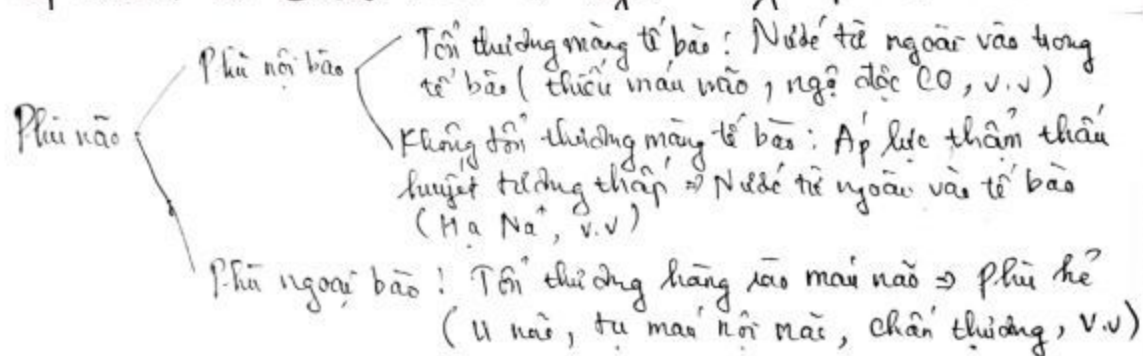 Tổn thương màng tế bào : Nước từ ngoài vào trong
Phù nội bào
tế bào ( thiếu máu não , ngộ độc CO , v.v )
Phù não
Không tổn thương màng tế bào : Áp lực thẩm thấu
huyết tương thấp ⇒ Nước từ ngoài vào tế bào
( Hạ Na⁺, v.v )
Phù ngoại bào : Tổn thương hàng rào máu não ⇒ Phù kẽ
( U não , tụ máu nội não , chấn thương , v.v )